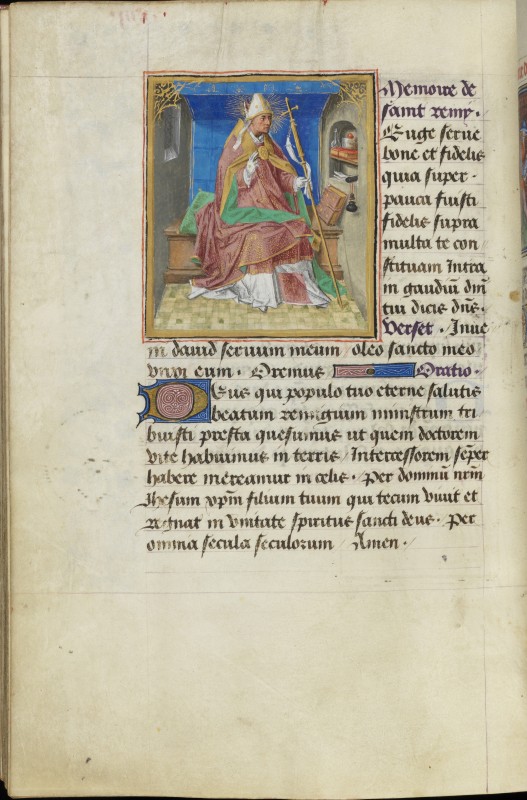 Memoire de
saint remy.
Euge serue
bone et fidelis
quia super
pauca fuisti
fidelis supra
multa te con
stituam Intra
in gaudiū dn̄i
tui dicis dn̄s.
Verset. Inue
ni dauid seruum meum / oleo sancto meo
vnxi eum. Oremus Oratio.
Deus qui populo tuo eterne salutis
beatum remigium ministrum tri
buisti presta quesumus ut quem doctorem
vite habuimus in terris / Intercessorem sēper
habere mereamur in celis. Per dominū nr̄m
Jhesum xp̄m filium tuum qui tecum viuit et
regnat in vnitate spiritus sancti deus. Per
omnia secula seculorum / Amen.